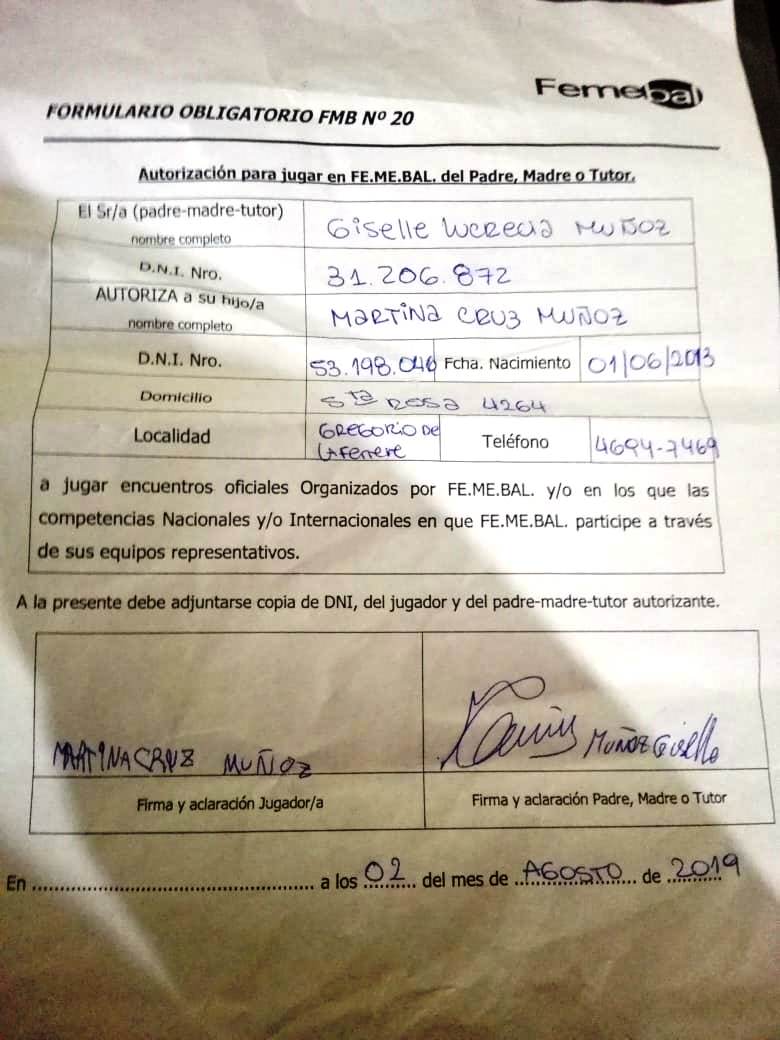 Femebal
FORMULARIO OBLIGATORIO FMB Nº 20
Autorización para jugar en FE.ME.BAL. del Padre, Madre o Tutor.
El Sr/a (padre-madre-tutor)
nombre completo
Giselle Lucrecia MUÑOZ
D.N.I. Nro.
31.206.872
AUTORIZA a su hijo/a
nombre completo
MARTINA CRUZ MUÑOZ
D.N.I. Nro. 53.198.046 Fcha. Nacimiento 01/06/2013
Domicilio Sta Rosa 4264
Localidad GREGORIO DE
Laferrere
Teléfono 4694-7469
a jugar encuentros oficiales Organizados por FE.ME.BAL. y/o en los que las
competencias Nacionales y/o Internacionales en que FE.ME.BAL. participe a través
de sus equipos representativos.
A la presente debe adjuntarse copia de DNI, del jugador y del padre-madre-tutor autorizante.
MARTINA CRUZ MUÑOZ
Muñoz Giselle
Firma y aclaración Jugador/a
Firma y aclaración Padre, Madre o Tutor
En ........................................... a los 02 del mes de AGOSTO de 2019